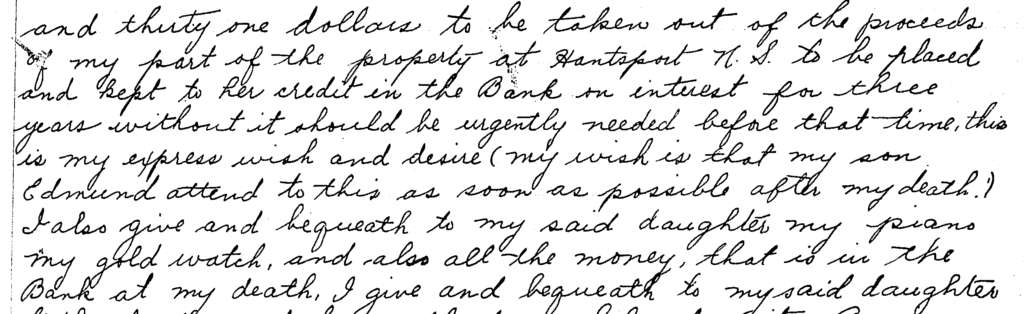 and thirty one dollars to be taken out of the proceeds
of my part of the property at Hantsport N. S. to be placed
and kept to her credit in the Bank on interest for three
years without it should be urgently needed before that time, this
is my express wish and desire (my wish is that my son
Edmund attend to this as soon as possible after my death.)
I also give and bequeath to my said daughter my piano
my gold watch, and also all the money, that is in the
Bank at my death, I give and bequeath to my said daughter